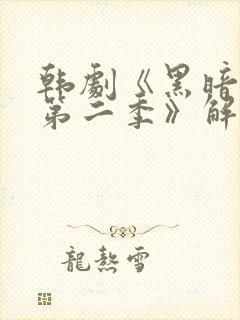 韩劇《黑暗
第二季》解
龍熬雪